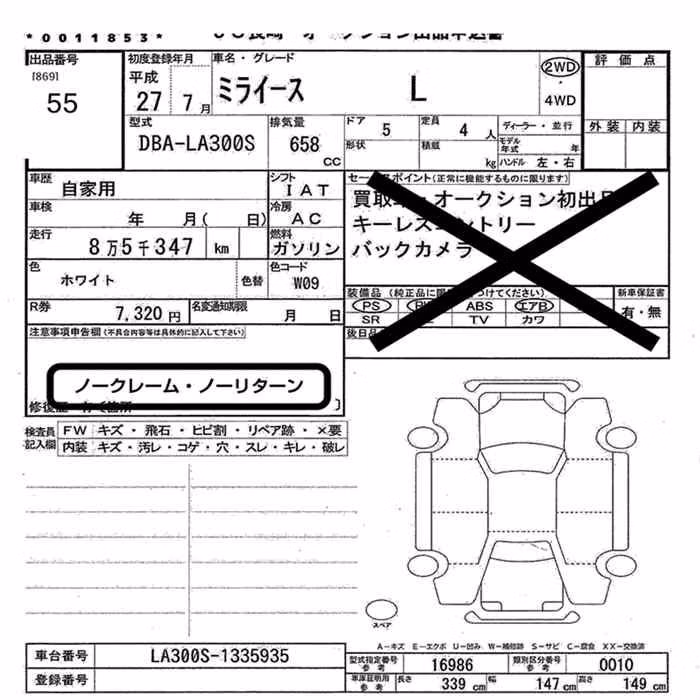 *0011853*
出品番号 初度登録年月 車名・グレード 2WD 評価点
[869] 平成 ・
55 27 7月 ミライース L 4WD
型式 排気量 ドア 5 定員 4人 ディーラー・並行 外装 内装
DBA-LA300S 658 cc 形状 積載 kg モデル年式 年
ハンドル 左・右
車歴 自家用 シフト IAT セールスポイント(正常に機能するものに限ります)
車検 年 月( 日) 冷房 AC オークション初出
キーレスエントリー
走行 8万5千347 km 燃料 ガソリン バックカメラ
色 ホワイト 色替 色コード W09 装備品 新車保証書
R券 7,320円 名変通知期限 月 日 PS ABS エアB 有・無
SR TV カワ
注意事項申告欄(不具合内容等は具体的に記入して下さい) 後日
ノークレーム・ノーリターン
検査員記入欄 FW キズ・飛石・ヒビ割・リペア跡・×要
内装 キズ・汚レ・コゲ・穴・スレ・キレ・破レ
スペア
A-キズ E-エクボ U-凹み W-補修跡 S-サビ C-腐食 XX-交換済
車台番号 LA300S-1335935 型式指定番号参考 16986 類別区分番号参考 0010
登録番号 車庫証明用参考 長さ 339cm 幅 147cm 高さ 149cm